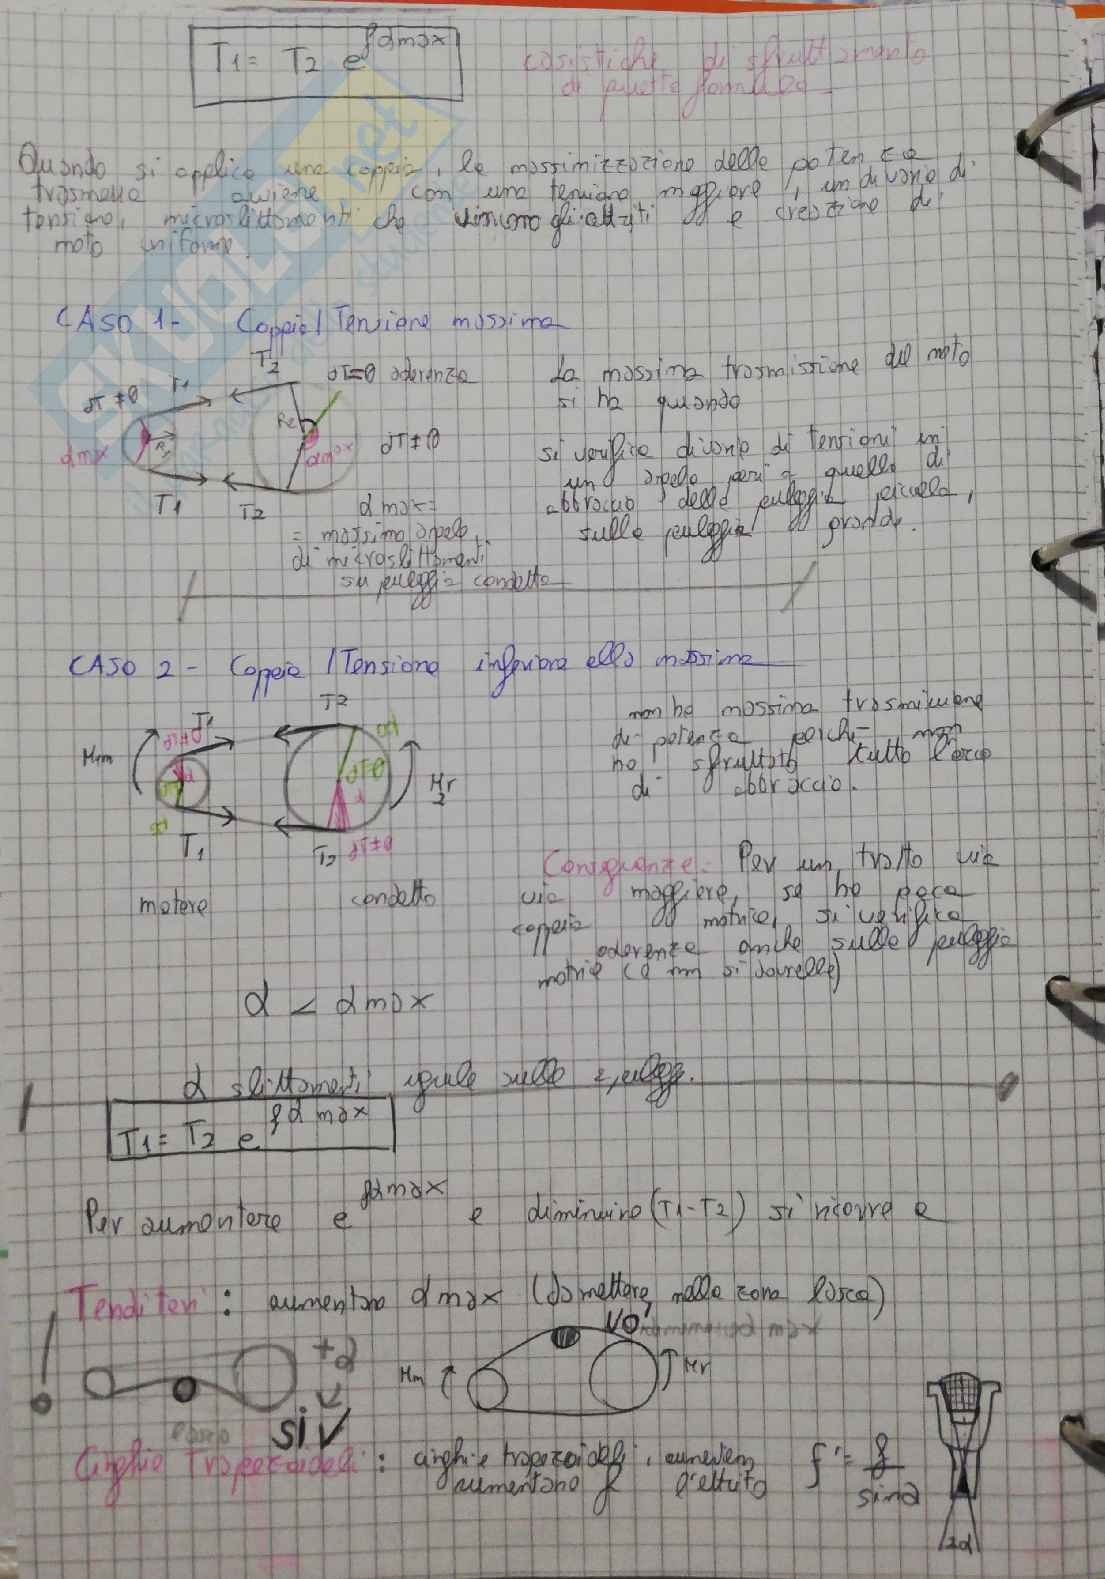 T1 = T2 e^fαmax
casistiche di sfruttamento
di questa formula
Quando si applica una coppia, la massimizzazione della potenza
trasmessa avviene con una tensione maggiore, un divario di
tensione, microslittamenti che vincono gli attriti e creazione di
moto uniforme.
CASO 1- Coppia/Tensione massima
T2
dT=0 aderenza
T1
dT≠0
Re
dT≠0
αmax
αmax
T1
T2
αmax=
= massimo angolo
di microslittamenti
su puleggia condotta
La massima trasmissione del moto
si ha quando
si verifica divario di tensioni in
un angolo pari a quello di
abbraccio della puleggia piccola,
sulla puleggia grande.
CASO 2 - Coppia/Tensione inferiore alla massima
T2
T1
dT≠0
Mm
dT=0
α
Mr
2
T1
T2 dT≠0
motore condotto
non ho massima trasmissione
di potenza perché non
ho sfruttato tutto l'arco
di abbraccio.
Conseguenze: Per un tratto via
via maggiore, se ho poca
coppia motrice, si verifica
aderenza anche sulla puleggia
motrice (e non si dovrebbe)
α < αmax
α slittamenti uguale sulle 2 pulegg.
T1 = T2 e^fαmax
Per aumentare e^fαmax e diminuire (T1-T2) si ricorre a
Tenditori: aumentano αmax (da mettere nella zona lasca)
NO!
+α
Mm
Mr
lasco
SI V
Cinghie Trapezoidali: cinghie trapezoidali, aumentano
aumentano f l'attrito
f' = f/sinα
2α